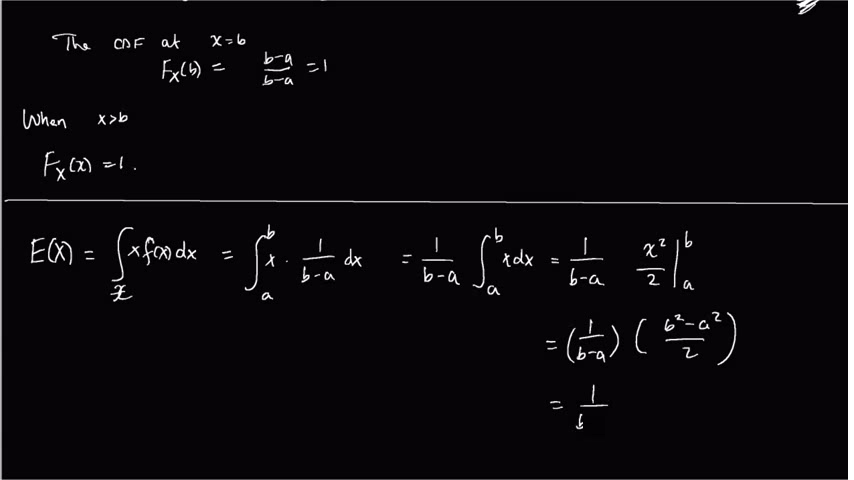 The CDF at x=b
F_X(b) = \frac{b-a}{b-a} = 1
When x>b
F_X(x) = 1.
E(X) = \int_{\mathcal{X}} x f(x) dx = \int_a^b x \cdot \frac{1}{b-a} dx = \frac{1}{b-a} \int_a^b x dx = \frac{1}{b-a} \frac{x^2}{2} |_a^b
= (\frac{1}{b-a}) (\frac{b^2-a^2}{2})
= \frac{1}{b